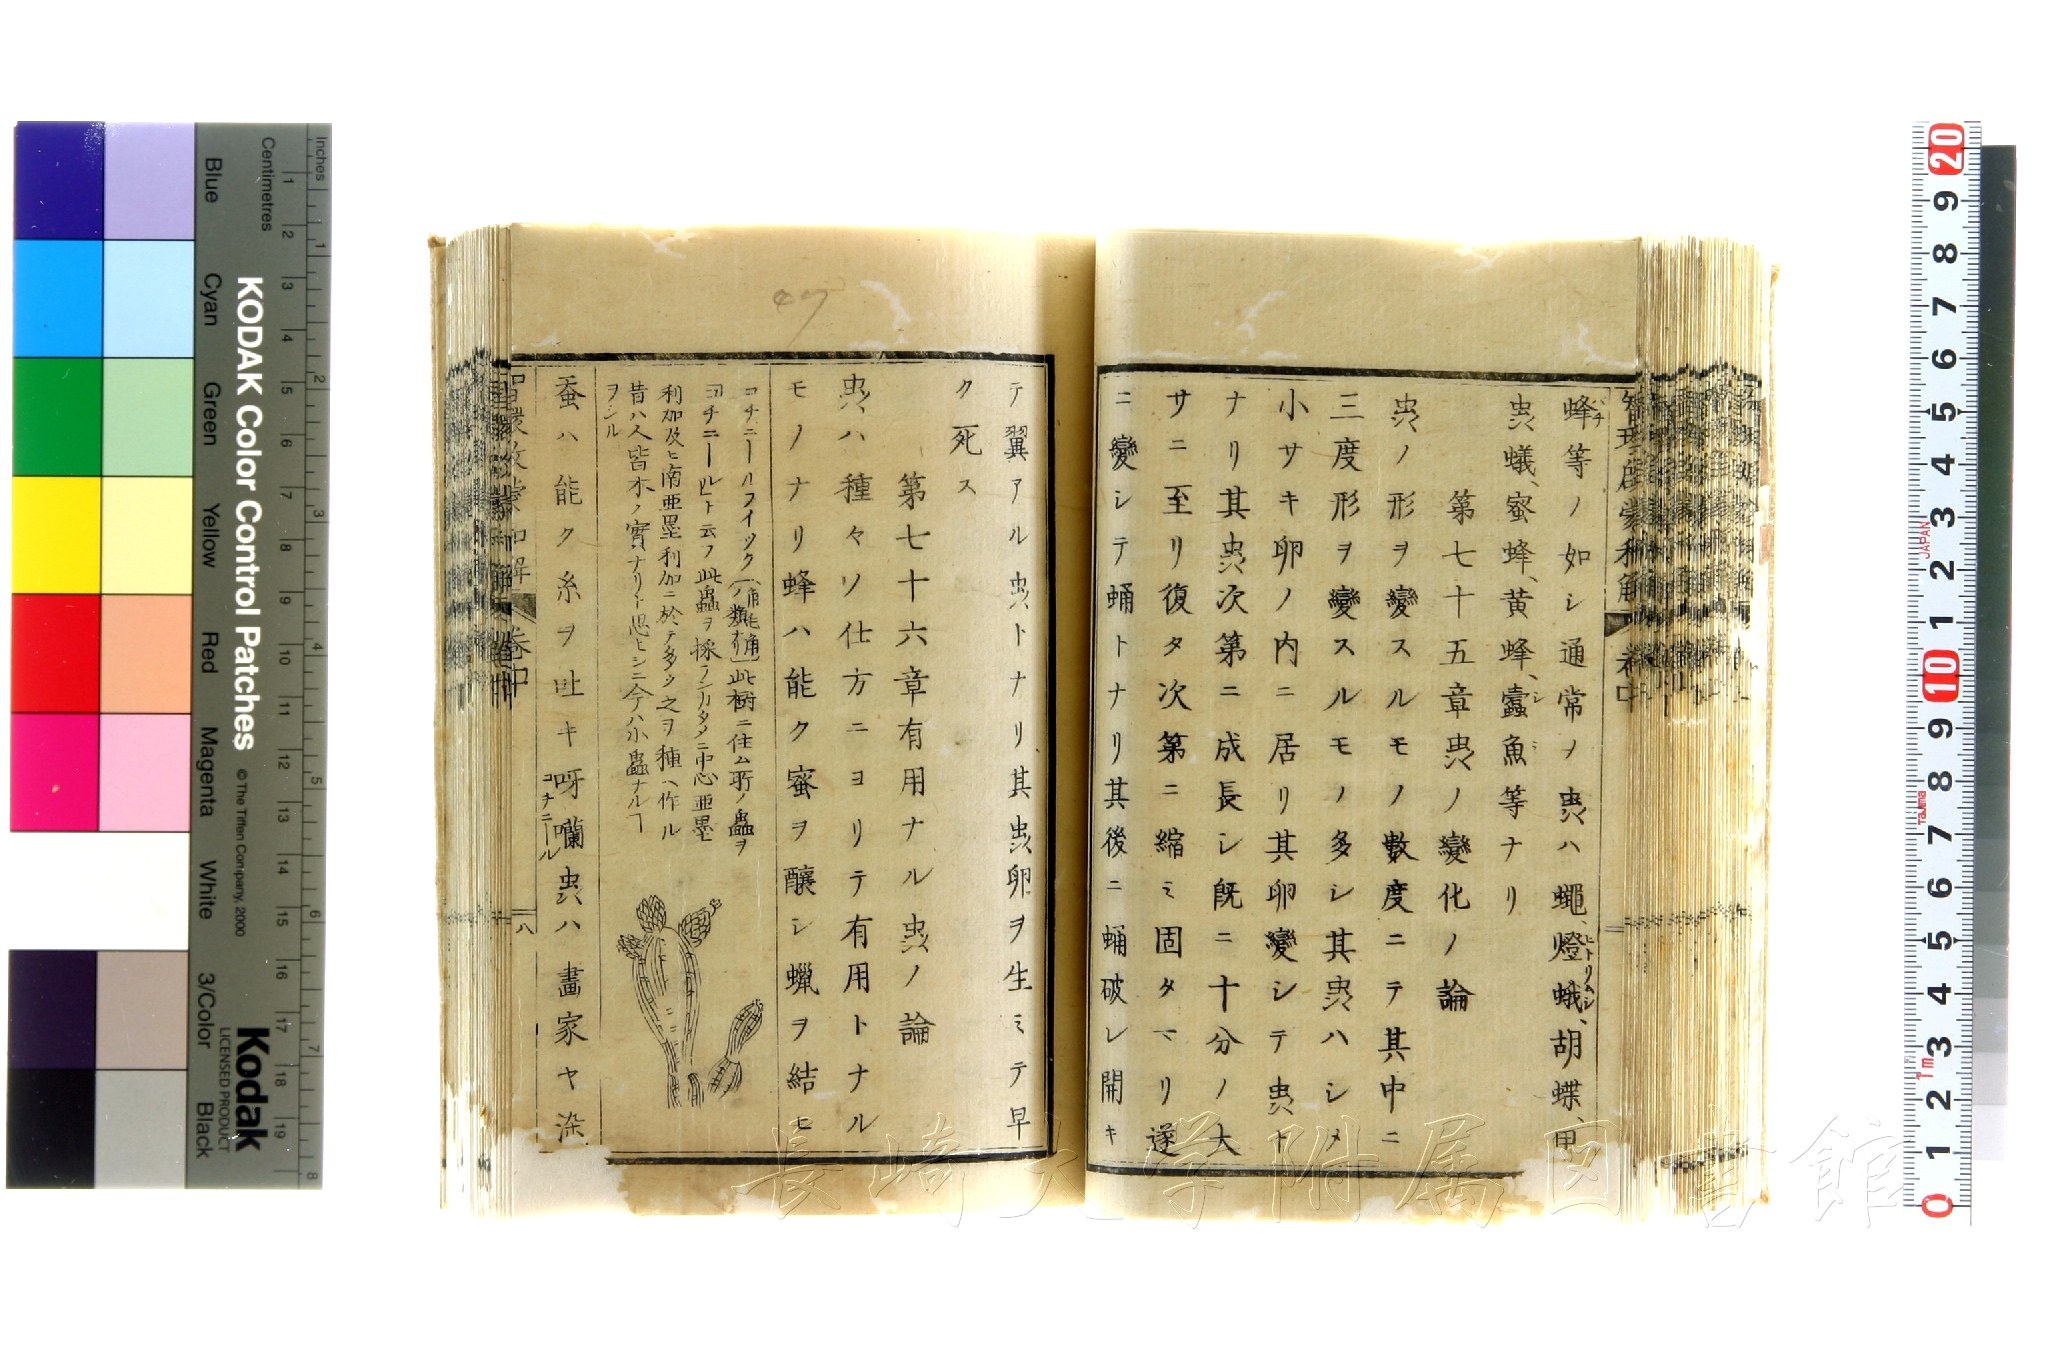 蜂等ノ如シ通常ノ虫ハ蠅、燈蛾、胡蝶、甲
ハチ
ヒトリムシ
虫蟻、蜜蜂、黄蜂、蠹魚等ナリ
シミ
第七十五章虫ノ變化ノ論
虫ノ形ヲ變スルモノ數度ニテ其中ニ
三度形ヲ變スルモノ多シ其虫ハシメ
小サキ卵ノ内ニ居リ其卵變シテ虫ト
ナリ其虫次第ニ成長シ既ニ十分ノ大
サニ至リ復タ次第ニ縮ミ固タマリ遂
ニ變シテ蛹トナリ其後ニ蛹破レ開キ
テ翼アル虫トナリ其虫卵ヲ生ミテ早
ク死ス
第七十六章有用ナル虫ノ論
虫ハ種々ソ仕方ニヨリテ有用トナル
モノナリ蜂ハ能ク蜜ヲ釀シ蝋ヲ結ヒ
コチニールフイック
此樹ニ住ム所ノ蟲ヲ
コチニール虫ト云フ此蟲ヲ採ランカタメニ中心亜墨
利加及ヒ南亜墨利加ニ於テ多ク之ヲ種ヘ作ル
昔ハ人皆木ノ實ナリト思ヒシニ今ハ小蟲ナルヿ
ヲシル
蚕ハ能ク糸ヲ吐キ呀囒虫ハ畫家ヤ染
コチニール
八
智環啓蒙和解
卷中
長崎大学附属図書館
KODAK Color Control Patches
© The Tiffen Company, 2000
Kodak
LICENSED PRODUCT
Inches
Centimetres
Blue
Cyan
Green
Yellow
Red
Magenta
White
3/Color
Black
1 2 3 4 5 6 7 8 9 10 11 12 13 14 15 16 17 18 19
1 2 3 4 5 6 7 8
20 9 8 7 6 5 4 3 2 1 10 9 8 7 6 5 4 3 2 1 0
JAPAN
Tajima
1m